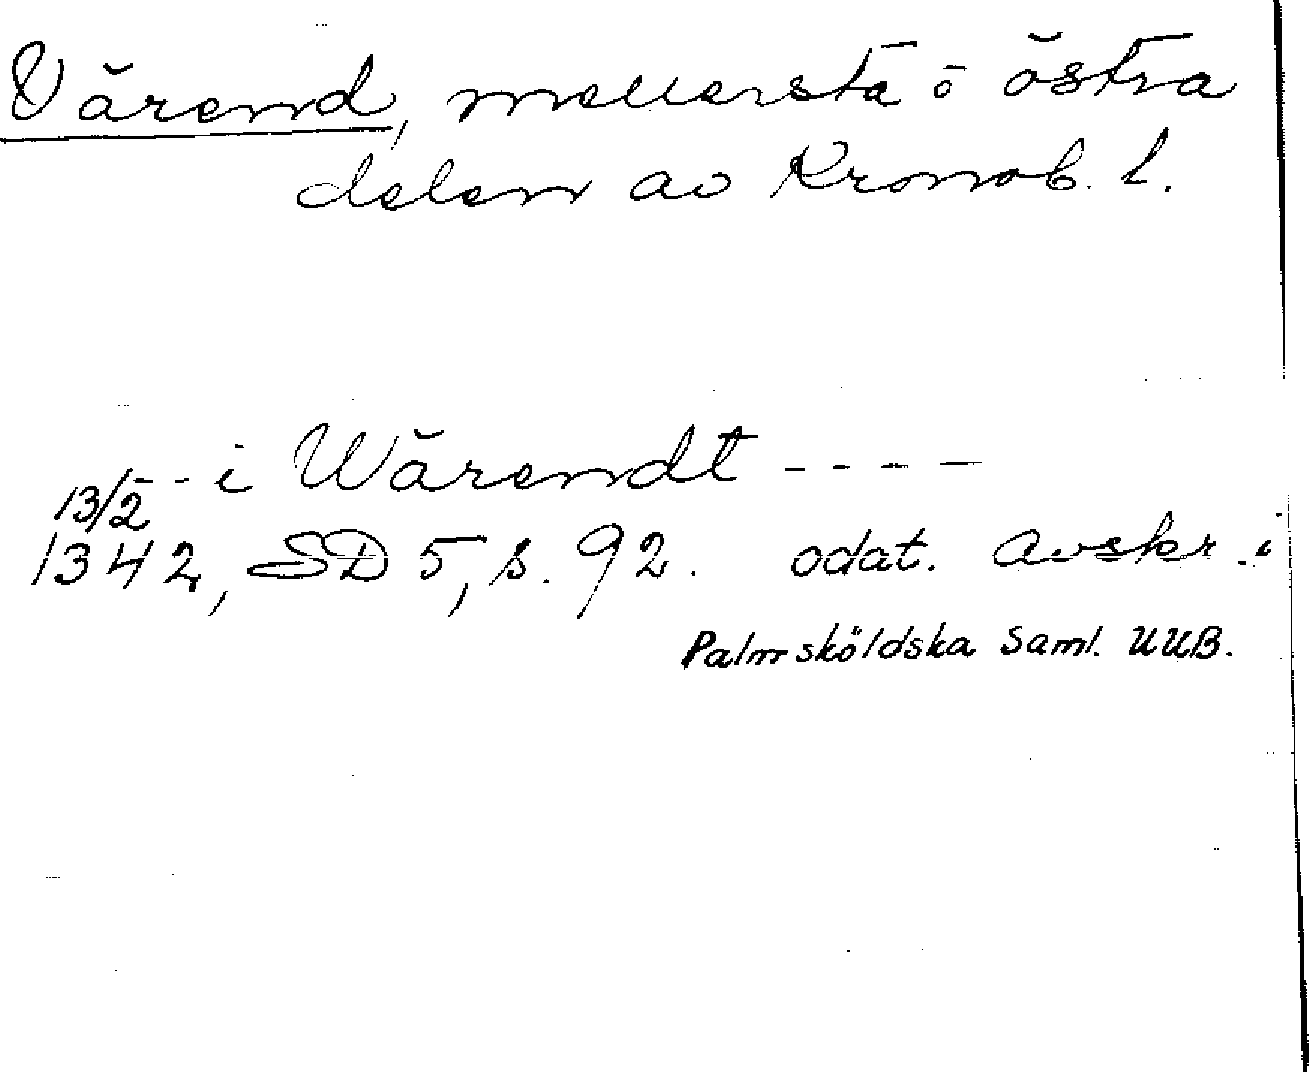 Värend, mellersta o östra
delen av Kronob. l.
- - i Wärendt - - - -
13/2
1342, SD 5, s. 92. odat. Avskr. i
Palmsköldska Saml. UUB.